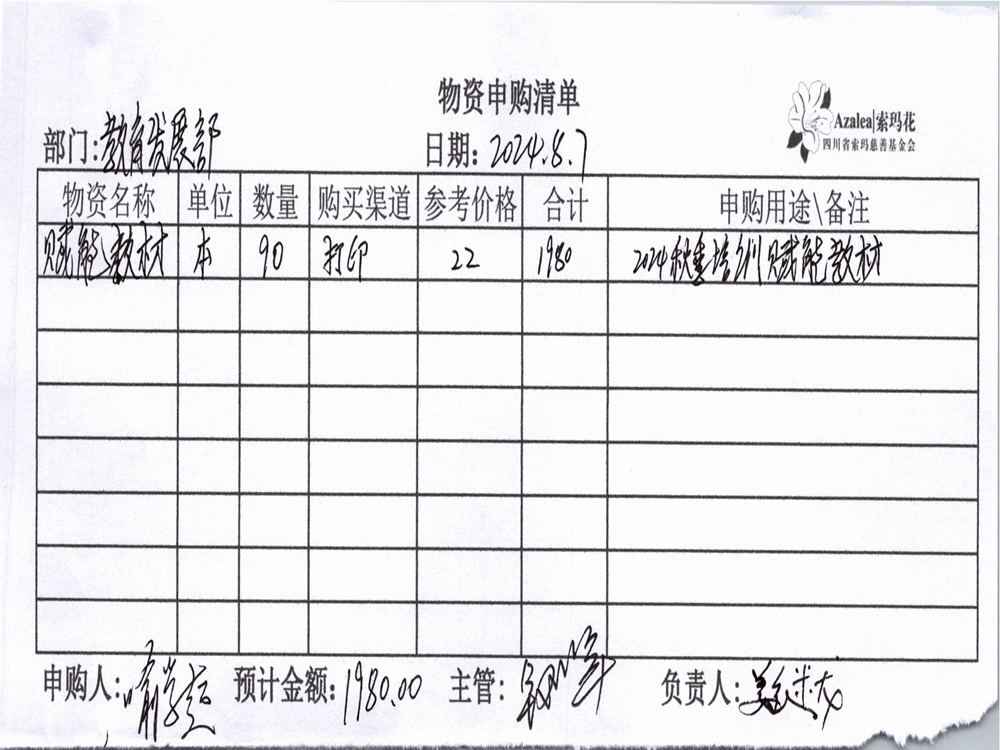 物资申购清单
Azalea|索玛花
四川省索玛慈善基金会
部门:教育发展部 日期:2024.8.7
物资名称 单位 数量 购买渠道 参考价格 合计 申购用途\备注
赋能教材 本 90 打印 22 1980 2024秋季培训赋能教材
申购人: 预计金额:1980.00 主管: 负责人: